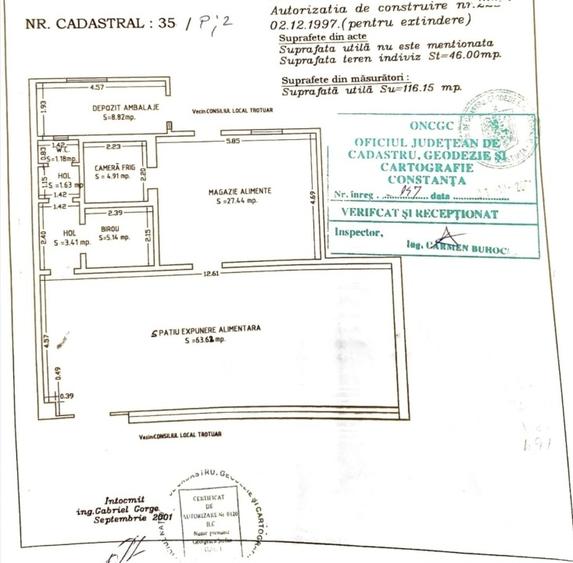 NR. CADASTRAL : 35 / P;2
Autorizatia de construire nr.
02.12.1997.(pentru extindere)
Suprafete din acte
Suprafata utilă nu este mentionata
Suprafata teren indiviz St=46.00mp.
Suprafete din măsurători :
Suprafată utilă Su=116.15 mp.
4.57
1.93
DEPOZIT AMBALAJE
S=8.82mp.
Vecin CONSILUL LOCAL TROTUAR
5.85
1.42
0.83
W.C.
S=1.18mp.
1.42
2.23
CAMERĂ FRIG
S = 4.91 mp.
2.20
HOL
S=1.63 mp
1.15
1.42
1.42
MAGAZIE ALIMENTE
S=27.44 mp.
4.69
2.39
HOL
S =3.41 mp.
2.40
BIROU
S=5.14 mp.
2.15
12.61
SPATIU EXPUNERE ALIMENTARA
S =63.62 mp.
4.57
0.49
0.39
Vecin CONSILUL LOCAL TROTUAR
ONCGC
OFICIUL JUDEȚEAN DE
CADASTRU, GEODEZIE ȘI
CARTOGRAFIE
CONSTANȚA
Nr. înreg. data
VERIFCAT ȘI RECEPȚIONAT
Inspector,
Ing. CARMEN BUHOCI
Intocmit
ing.Gabriel Gorge
Septembrie 2001
CERTIFICAT
DE
AUTORIZARE